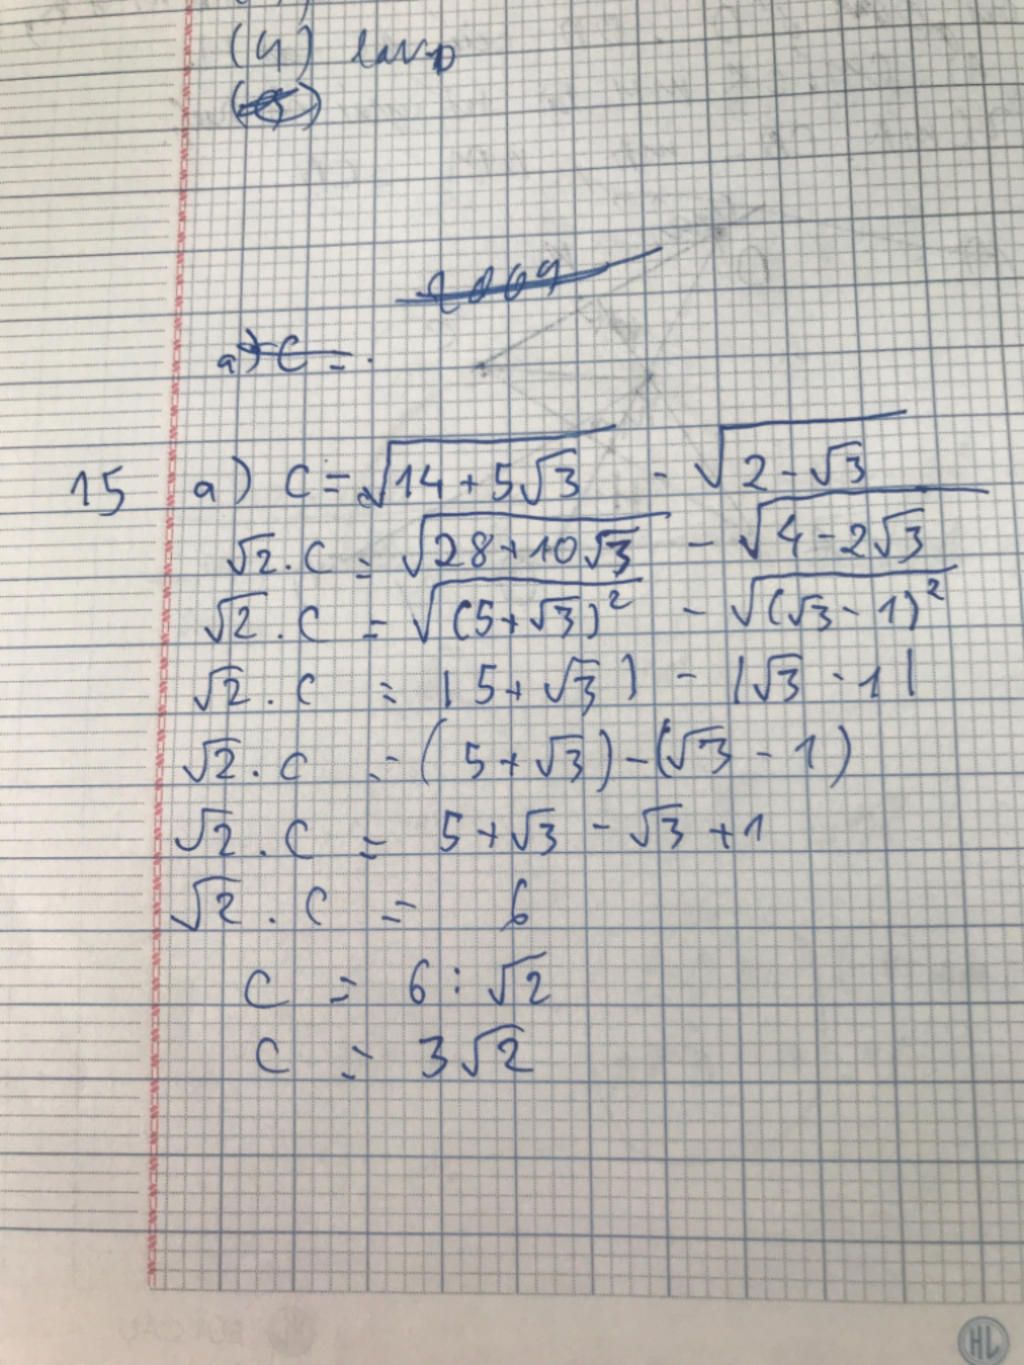 (4)
2009
a) C = .
15 a) C = √(14 + 5√3) - √(2 - √3)
√2 . C = √(28 + 10√3) - √(4 - 2√3)
√2 . C = √((5 + √3)²) - √((√3 - 1)²)
√2 . C = |5 + √3| - |√3 - 1|
√2 . C = (5 + √3) - (√3 - 1)
√2 . C = 5 + √3 - √3 + 1
√2 . C = 6
C = 6 : √2
C = 3√2
HL